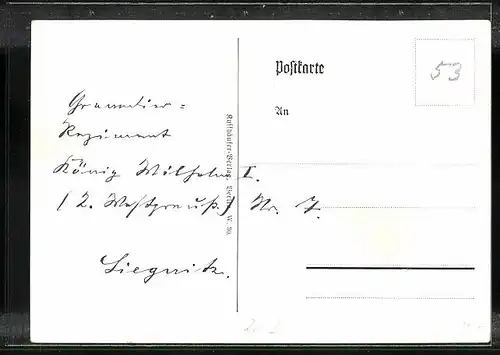 Postkarte
53
An
Grenadier=
Regiment
König Wilhelm I.
(2. Westpreuß.) Nr. 7.
Liegnitz.
Kyffhäuser-Verlag, Berlin W. 30.